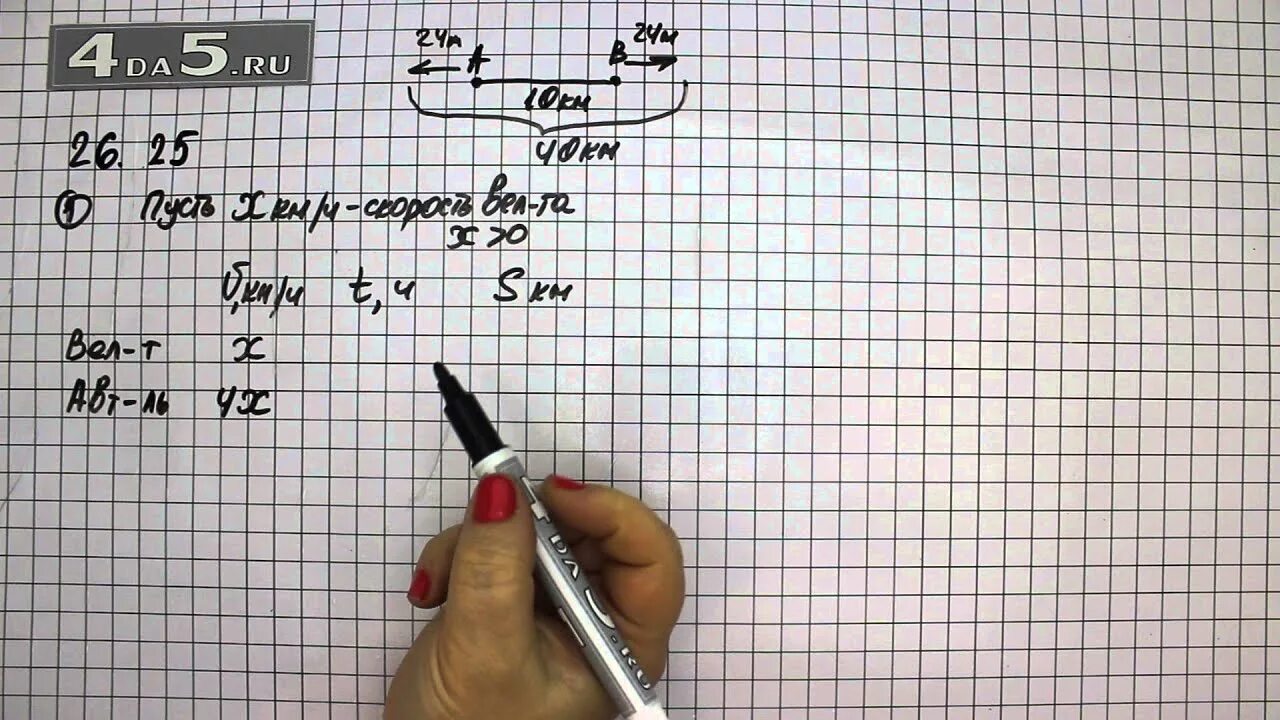 4DA5.RU
24м 24м
A B
10км
40км
26.25
① Пусть x км/ч - скорость Вел-та
x > 0
V,км/ч t,ч S км
Вел-т x
Авт-ль 4x